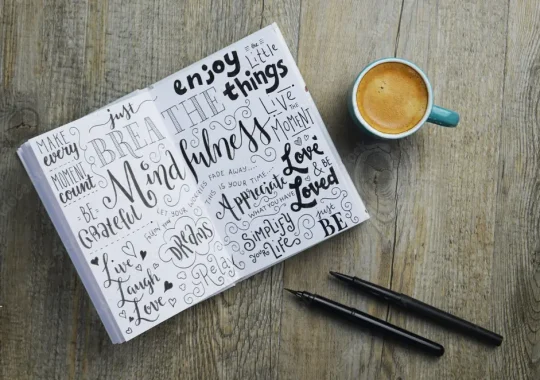 MAKE
every
MOMENT
count
BE
Grateful
just
BREATHE
Mindfulness
enjoy
the Little
things
Live
THE
MOMENT
LET YOUR WORRIES FADE AWAY...
THIS IS YOUR TIME...
Appreciate
WHAT YOU HAVE
Love
& BE
Loved
DREAMS
Relax
SIMPLIFY
your life
just
BE
Live
Laugh
Love